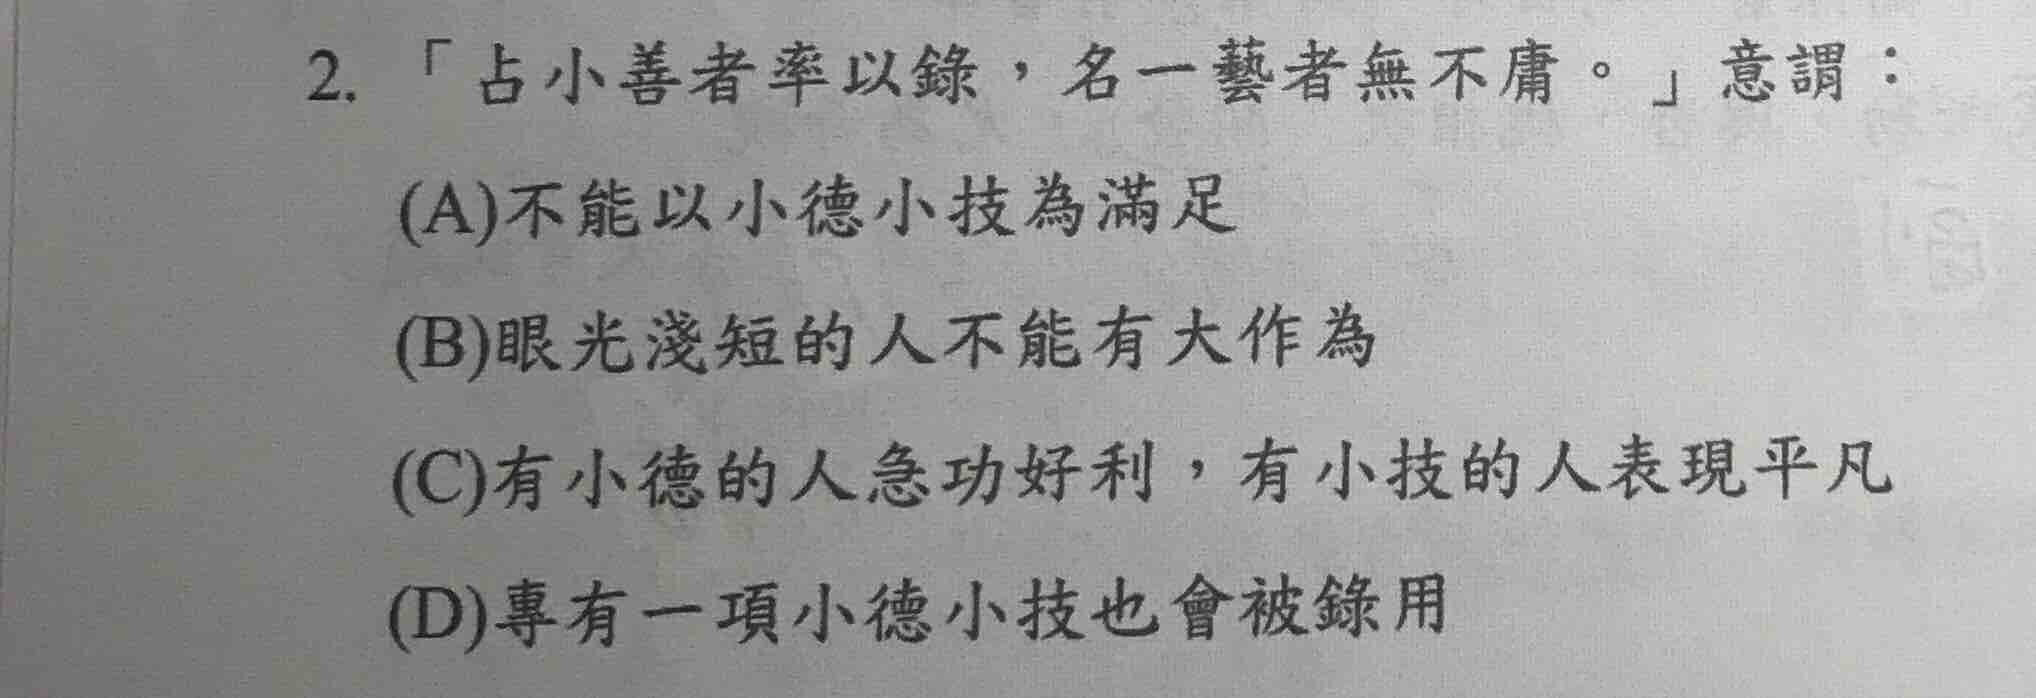 2. 「占小善者率以錄，名一藝者無不庸。」意謂：
(A)不能以小德小技為滿足
(B)眼光淺短的人不能有大作為
(C)有小德的人急功好利，有小技的人表現平凡
(D)專有一項小德小技也會被錄用